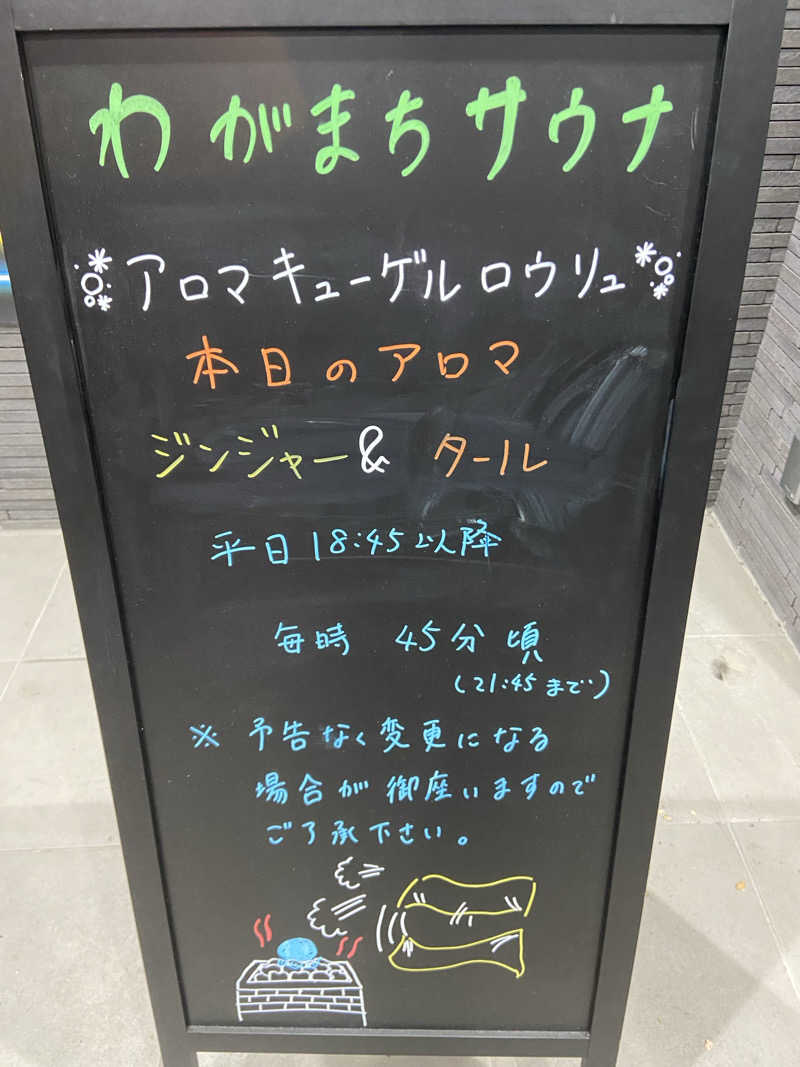 わがまちサウナ
アロマキューゲルロウリュ
本日のアロマ
ジンジャー& タール
平日18:45以降
毎時 45分頃
(21:45まで)
※ 予告なく変更になる
場合が御座いますので
ご了承下さい。